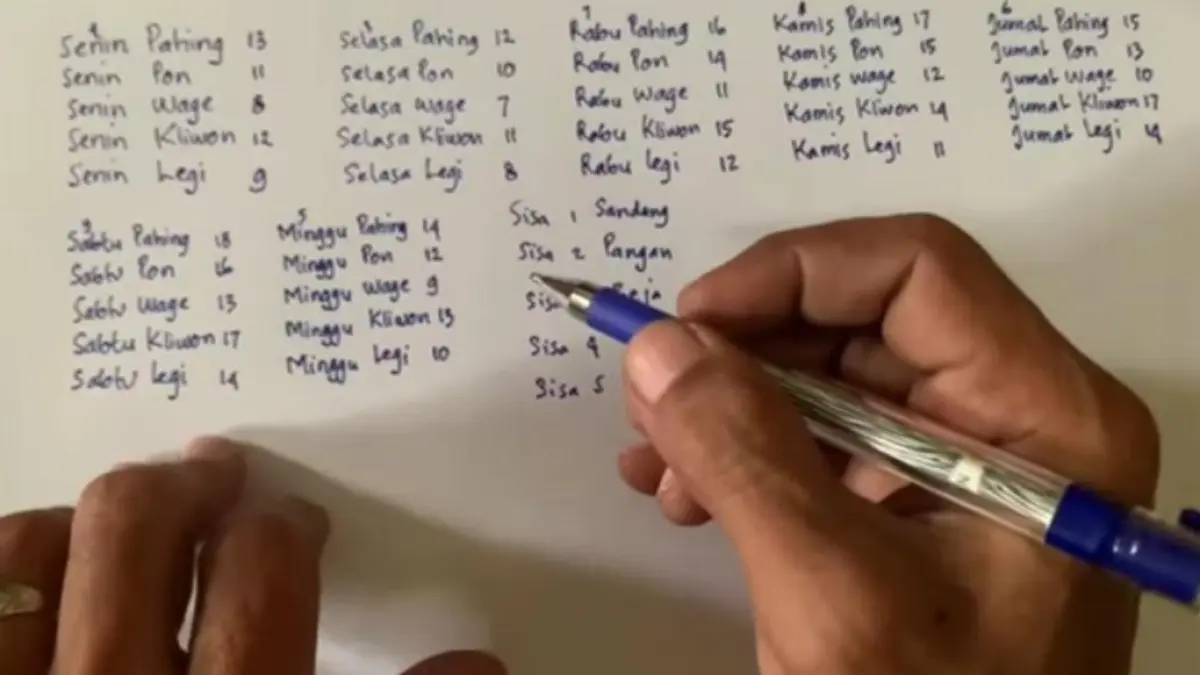 4
Senin Pahing 13
Senin Pon 11
Senin Wage 8
Senin Kliwon 12
Senin Legi 9
Selasa Pahing 12
Selasa Pon 10
Selasa Wage 7
Selasa Kliwon 11
Selasa Legi 8
7
Rabu Pahing 16
Rabu Pon 14
Rabu Wage 11
Rabu Kliwon 15
Rabu Legi 12
8
Kamis Pahing 17
Kamis Pon 15
Kamis Wage 12
Kamis Kliwon 14
Kamis Legi 11
6
Jumat Pahing 15
Jumat Pon 13
Jumat Wage 10
Jumat Kliwon 17
Jumat Legi 14
9
Sabtu Pahing 18
Sabtu Pon 16
Sabtu Wage 13
Sabtu Kliwon 17
Sabtu Legi 14
5
Minggu Pahing 14
Minggu Pon 12
Minggu Wage 9
Minggu Kliwon 13
Minggu Legi 10
Sisa 1 Sandang
Sisa 2 Pangan
Sisa
Sisa 4
Sisa 5